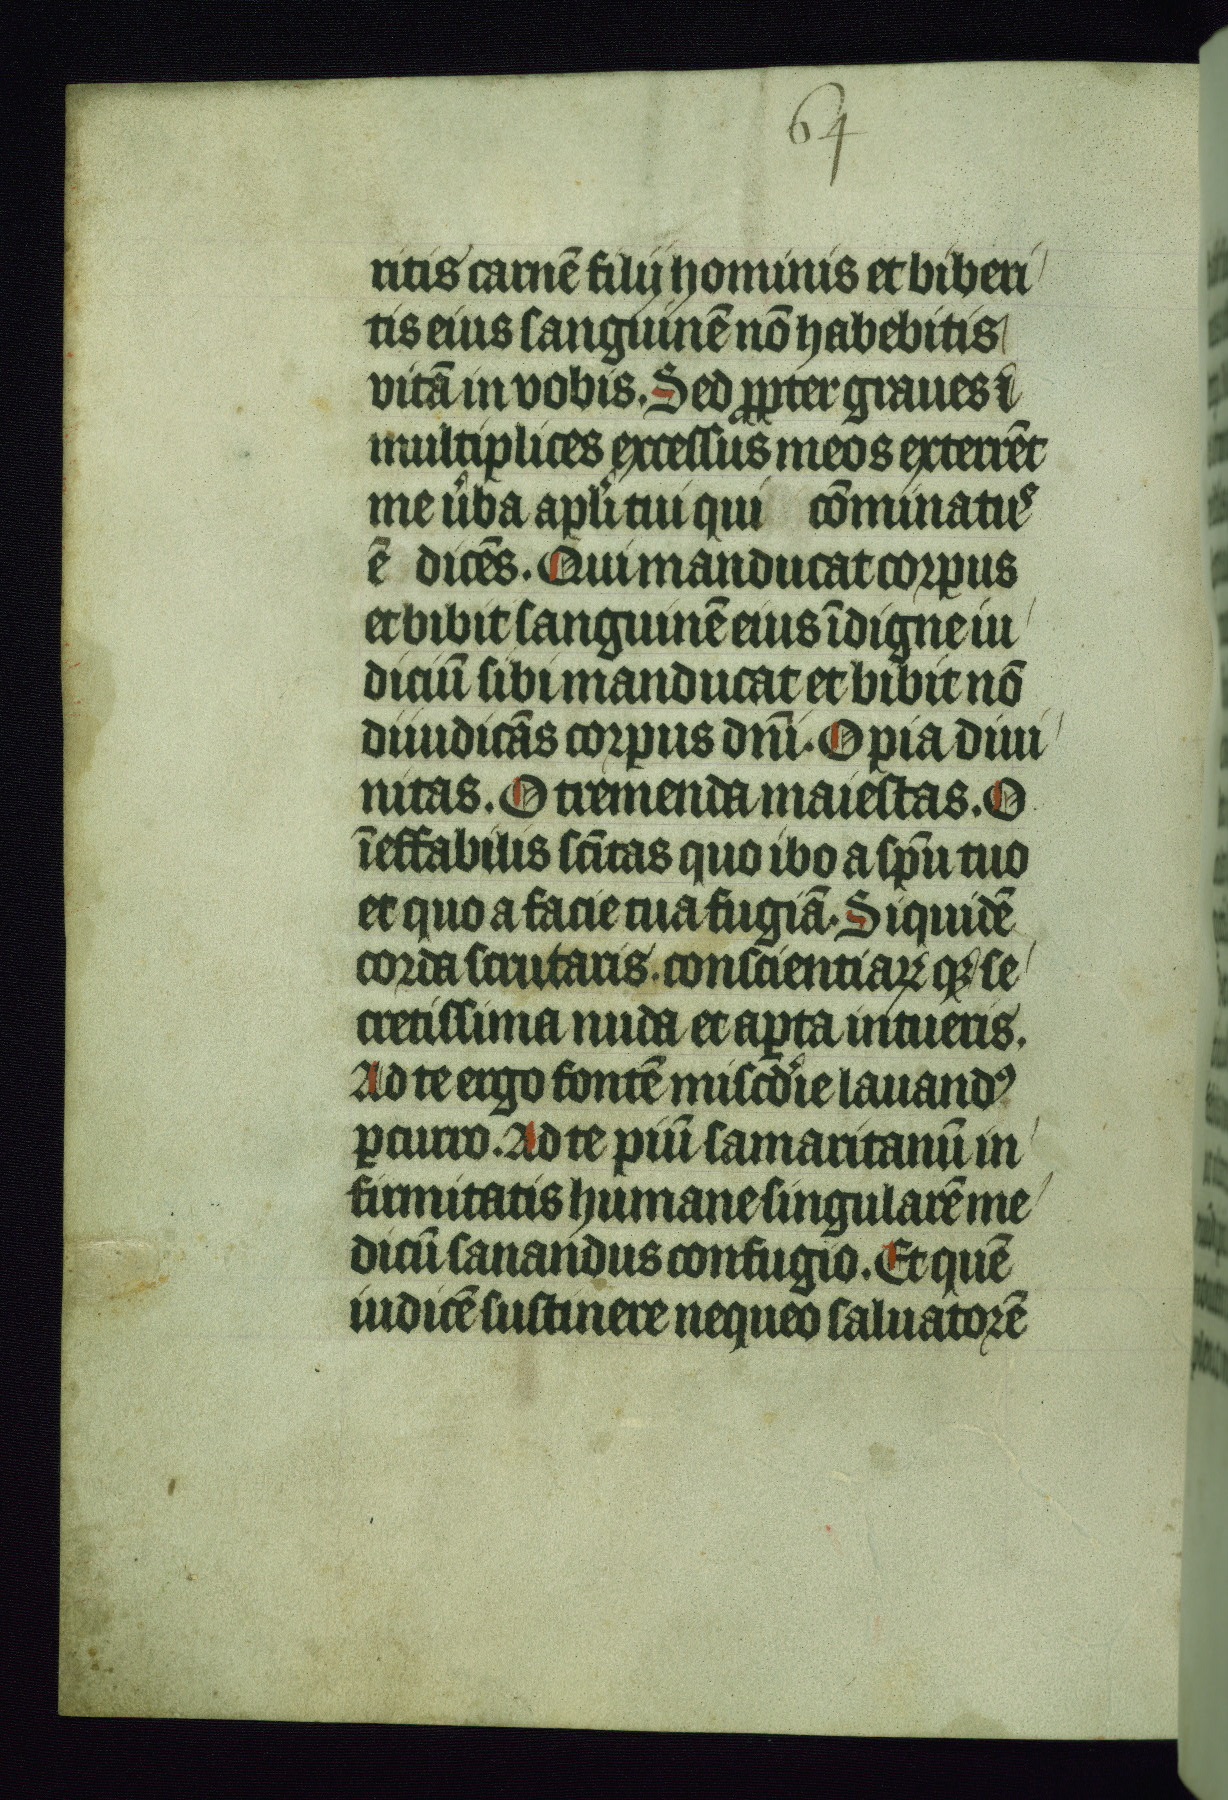 64
ritis carnē filij hominis et biberi
tis eius sanguinē nō habebitis
vitā in vobis. Sed ꝓpter graues ⁊
multiplices excessus meos exterrēt
me ůba apłi tui qui cōminatuˢ
ē dicēs. Qui manducat corpus
et bibit sanguinē eius īdigne iu
diciū sibi manducat et bibit nō
diiudicās corpus dn̄i. O pia diui
nitas. O tremenda maiestas. O
īeffabilis sc̄itas quo ibo a sp̄u tuo
et quo a facie tua fugiā. Siquidē
corda scrutaris. conscientiaꝝ qꝫ se
cretissima nuda et aꝑta intueris.
Ad te ergo fontē misc̄die lauandꝰ
ꝑcurro. Ad te piū samaritanū in
firmitatis humane singularē me
dicū sanandus confugio. Et quē
iudicē sustinere nequeo saluatorē